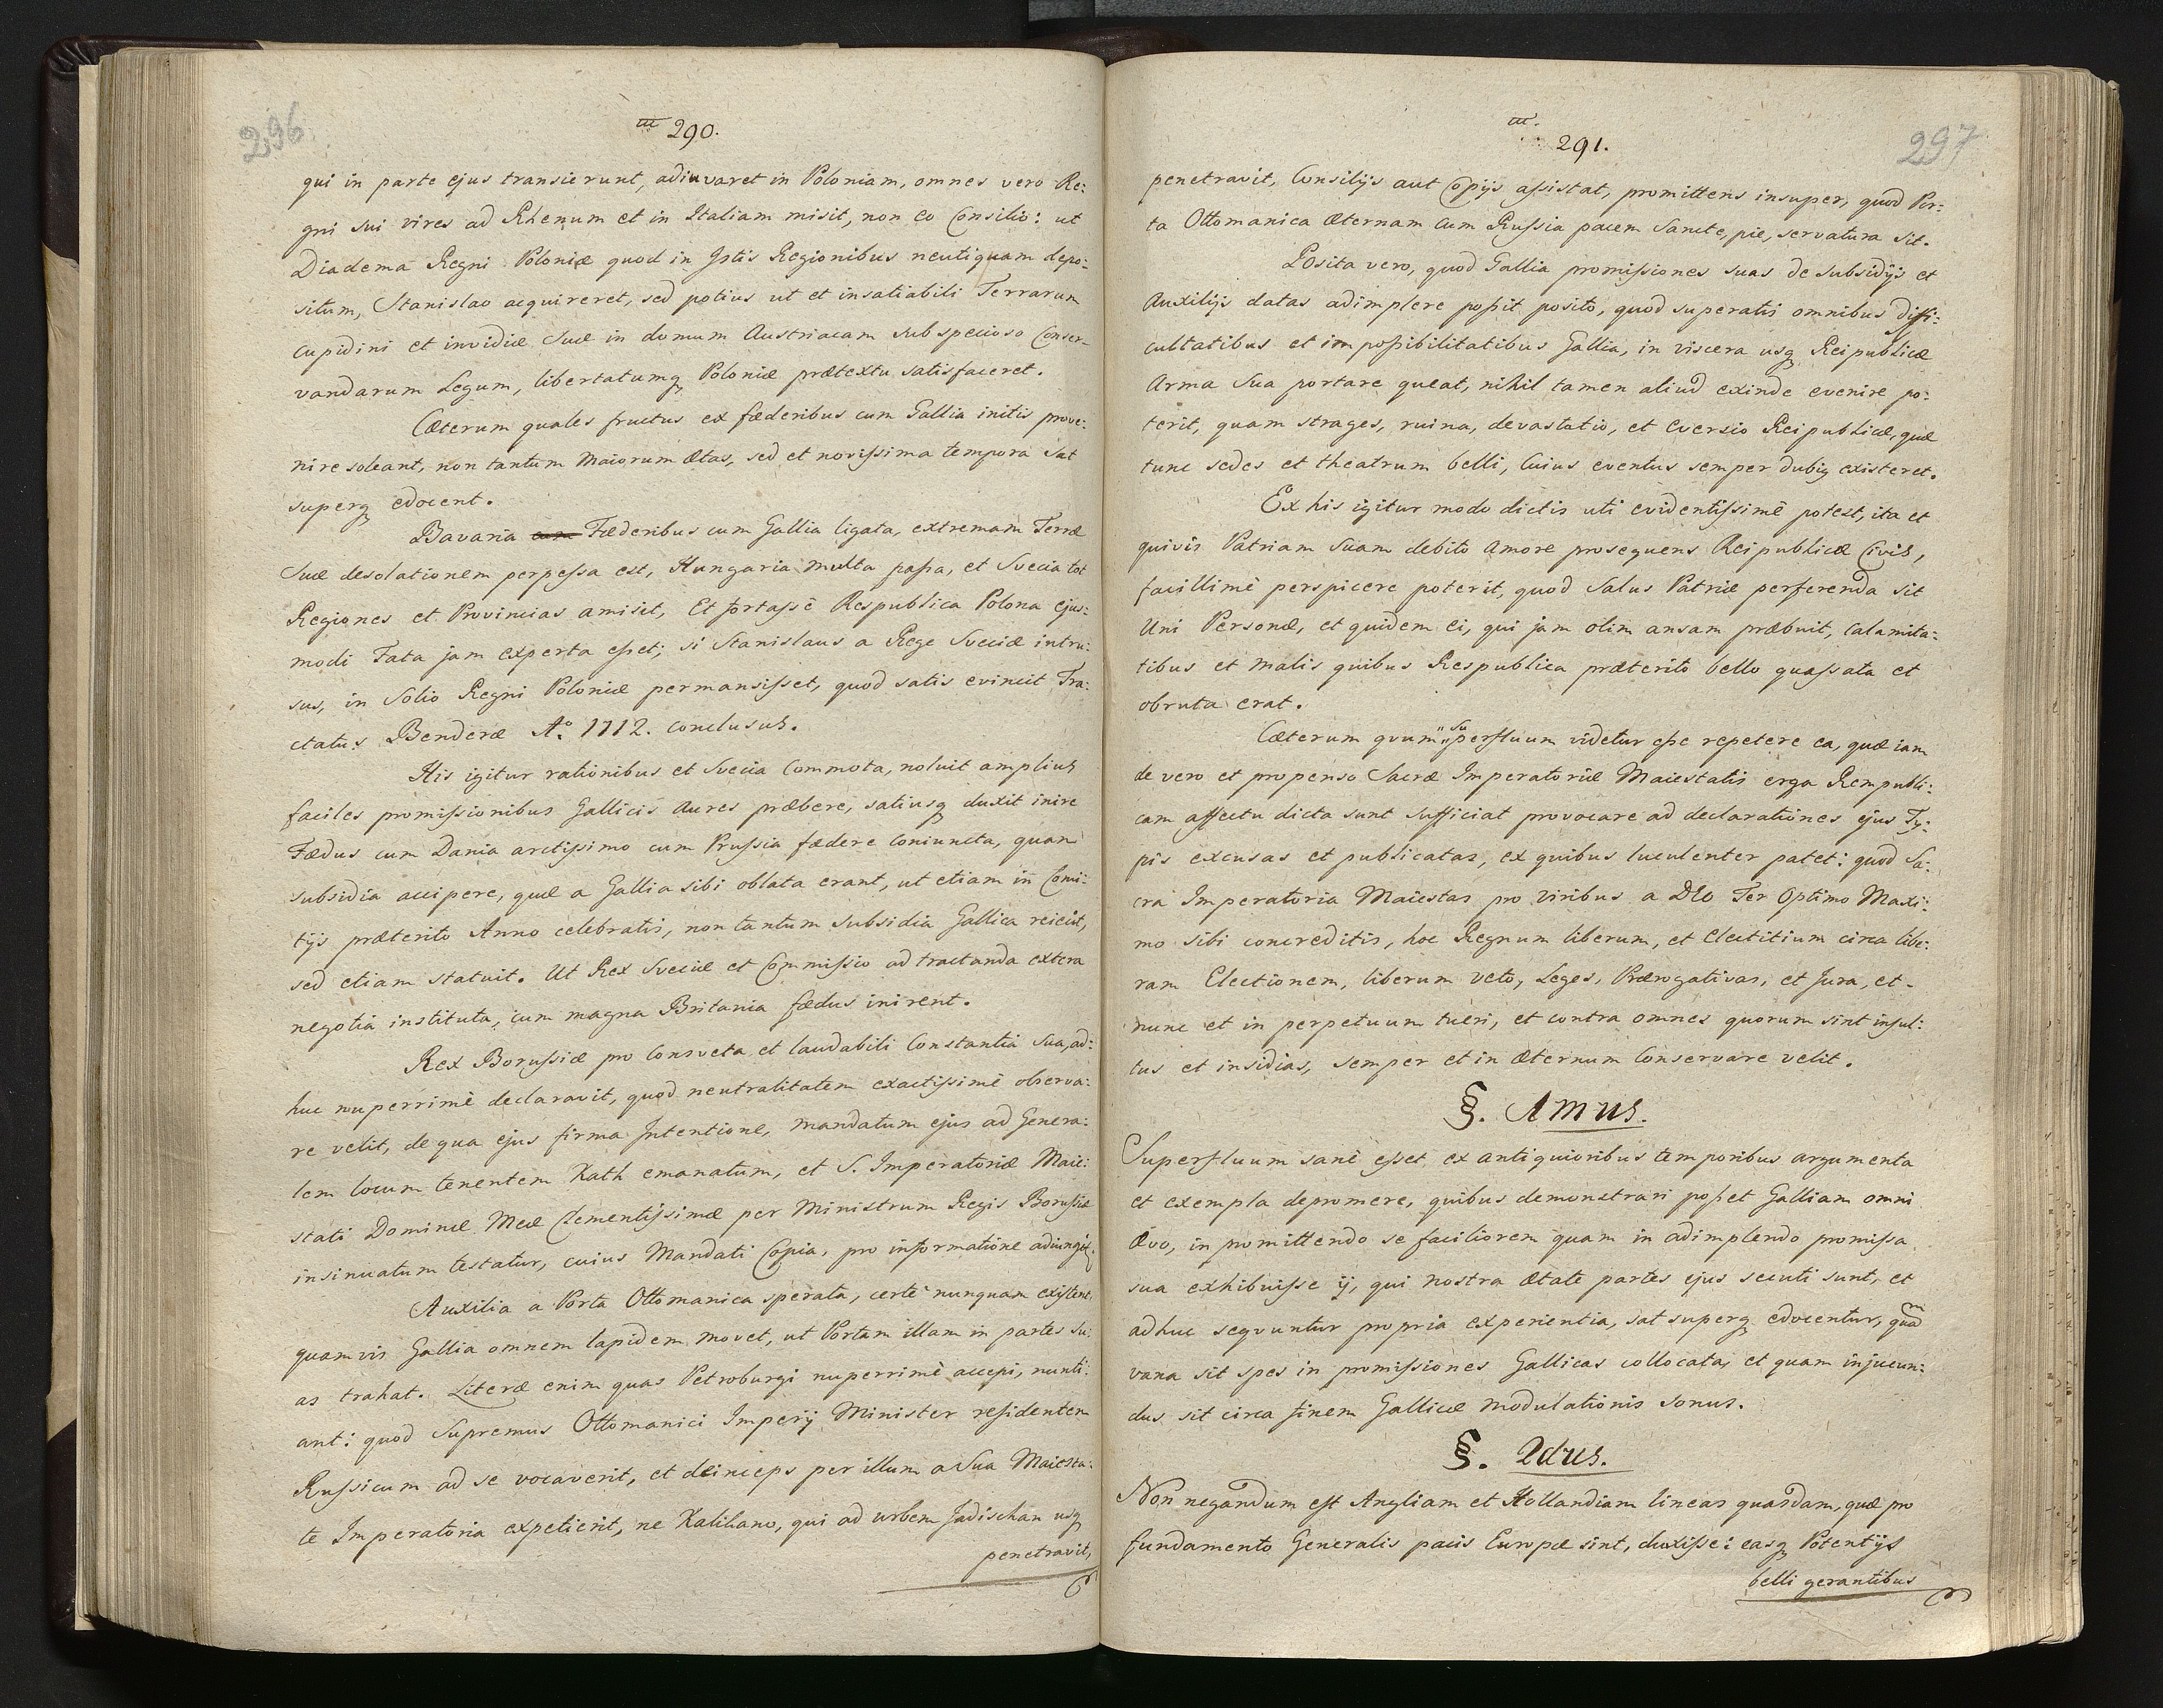 296
290.
qui in parte ejus transierunt, adiuvaret in Poloniam, omnes vero Re:
gni sui vires ad Rhenum et in Italiam misit, non eo Consilio: ut
Diadema Regni Poloniæ quod in Istis Regionibus neutiquam depo:
situm, Stanislao acquireret, sed potius ut et insatiabili Terrarum
cupidini et invidiæ Suæ in domum Austriacam sub specioso Conser-
vandarum Legum, libertatumq Poloniæ prætextu satisfaceret.
Cæterum quales fructus ex fæderibus cum Gallia initis prove:
nire soleant, non tantum Maiorum Ætas, sed et novissima tempora sat
superq edocent.
Bavaria cum Fæderibus cum Gallia ligata, extremam Terræ
Suæ desolationem perpessa est, Hungaria multa passa, et Svecia tot
Regiones et Provincias amisit, Et fortassè Respublica Polona ejus:
modi Fata jam experta esset; si Stanislaus a Rege Sveciæ intru:
sus, in Solio Regni Poloniæ permansisset, quod satis evincit Tra:
ctatus Benderæ Aº 1712. conclusus.
His igitur rationibus et Svecia Commota, noluit amplius
faciles promissionibus Gallicis aures præbere, satiusq duxit inire
Fædus cum Dania arctissimo cum Prussia fædere Coniuncta, quam
subsidia accipere, quæ a Gallia sibi oblata erant, ut etiam in Comi:
tijs præterito Anno celebratis, non tantum subsidia Gallica reiecit,
sed etiam statuit. Ut Rex Sveciæ et Commissio ad tractanda extera
negotia instituta, cum magna Britania fædus inirent.
Rex Borussiæ pro Consveta et laudabili Constantia Sua, ad:
huc nuperrimè declaravit, quod neutralitatem exactissimè observa:
re velit, de qua ejus firma Intentione, mandatum ejus ad Genera:
lem locum tenentem Kath emanatum, et S. Imperatoriæ Maie:
stati Dominæ Meæ Clementissimæ per Ministrum Regis Borussiæ
insinuatum testatur, cuius Mandati Copia, pro informatione adiungit.
Auxilia a Porta Ottomanica sperata, certè nunquam existent,
quamvis Gallia omnem lapidem movet, ut Portam illam in partes su:
as trahat. Literæ enim quas Petroburgi nuperrimè accepi, nunti:
ant: quod Supremus Ottomanici Imperij Minister residentem
Russicum ad se vocaverit, et deinceps per illum a Sua Maiesta:
te Imperatoria expetierit, ne Kalikano, qui ad urbem Jadischan usq
penetravit,
297
291.
penetravit, Consilijs aut Copijs assistat, promittens insuper, quod Por:
ta Ottomanica Æternam cum Russia pacem Sancte, pie, servatura sit.
Posita vero, quod Gallia promissiones suas de subsidijs et
Auxilijs datas adimplere possit posito, quod superatis omnibus diffi:
cultatibus et impossibilitatibus Gallia, in viscera usq Reipublicæ
Arma Sua portare queat, nihil tamen aliud exinde evenire po:
terit, quam strages, ruina, devastatio, et Eversio Reipublicæ, quæ
tunc sedes et theatrum belli, Cuius eventus semper dubiq existeret.
Ex his igitur modo dictis uti evidentissimè potest, ita et
quivis Patriam Suam debito Amore prosequens Reipublicæ Civis,
facillimè perspicere poterit, quod Salus Patriæ perferenda sit
Uni Personæ, et quidem ei, qui jam olim ansam præbuit, Calamita:
tibus et malis quibus Respublica præterito bello quassata et
obruta erat.
Cæterum qvum su perfluum videtur esse repetere ea, quæ iam
de vero et propenso Sacræ Imperatoriæ Maiestatis erga Rempubli:
cam affectu dicta sunt sufficiat provocare ad declarationes ejus Ty:
pis excusas et publicatas, ex quibus luculenter patet: quod Sa:
cra Imperatoria Maiestas pro Viribus a DEO Ter Optimo Maxi:
mo sibi concreditis, hoc Regnum liberum, et Electitium circa libe:
ram Electionem, liberum veto, Leges, Prærogativas, et Jura, et-
nunc et in perpetuum tueri, et contra omnes quorum sint insul:
tus et insidias, semper et in Æternum Conservare velit.
§. 1mus.
Superfluum sanè esset ex antiquioribus temporibus argumenta
et exempla depromere, quibus demonstrari posset Galliam omni
Ævo, in promittendo se faciliorem quam in adimplendo promissa
sua exhibuisse ij, qui nostra Ætate partes ejus secuti sunt, et
adhuc seqvuntur propria experientia, sat superq edocentur, quam
vana sit spes in promissiones Gallicas collocata, et quam injucun:
dus sit circa finem Gallicæ Modulationis sonus.
§. 2dus.
Non negandum est Angliam et Hollandiam lineas quasdam, quæ pro
fundamento Generalis pacis Europæ sint, duxisse: easq Potentijs
belli gerantibus